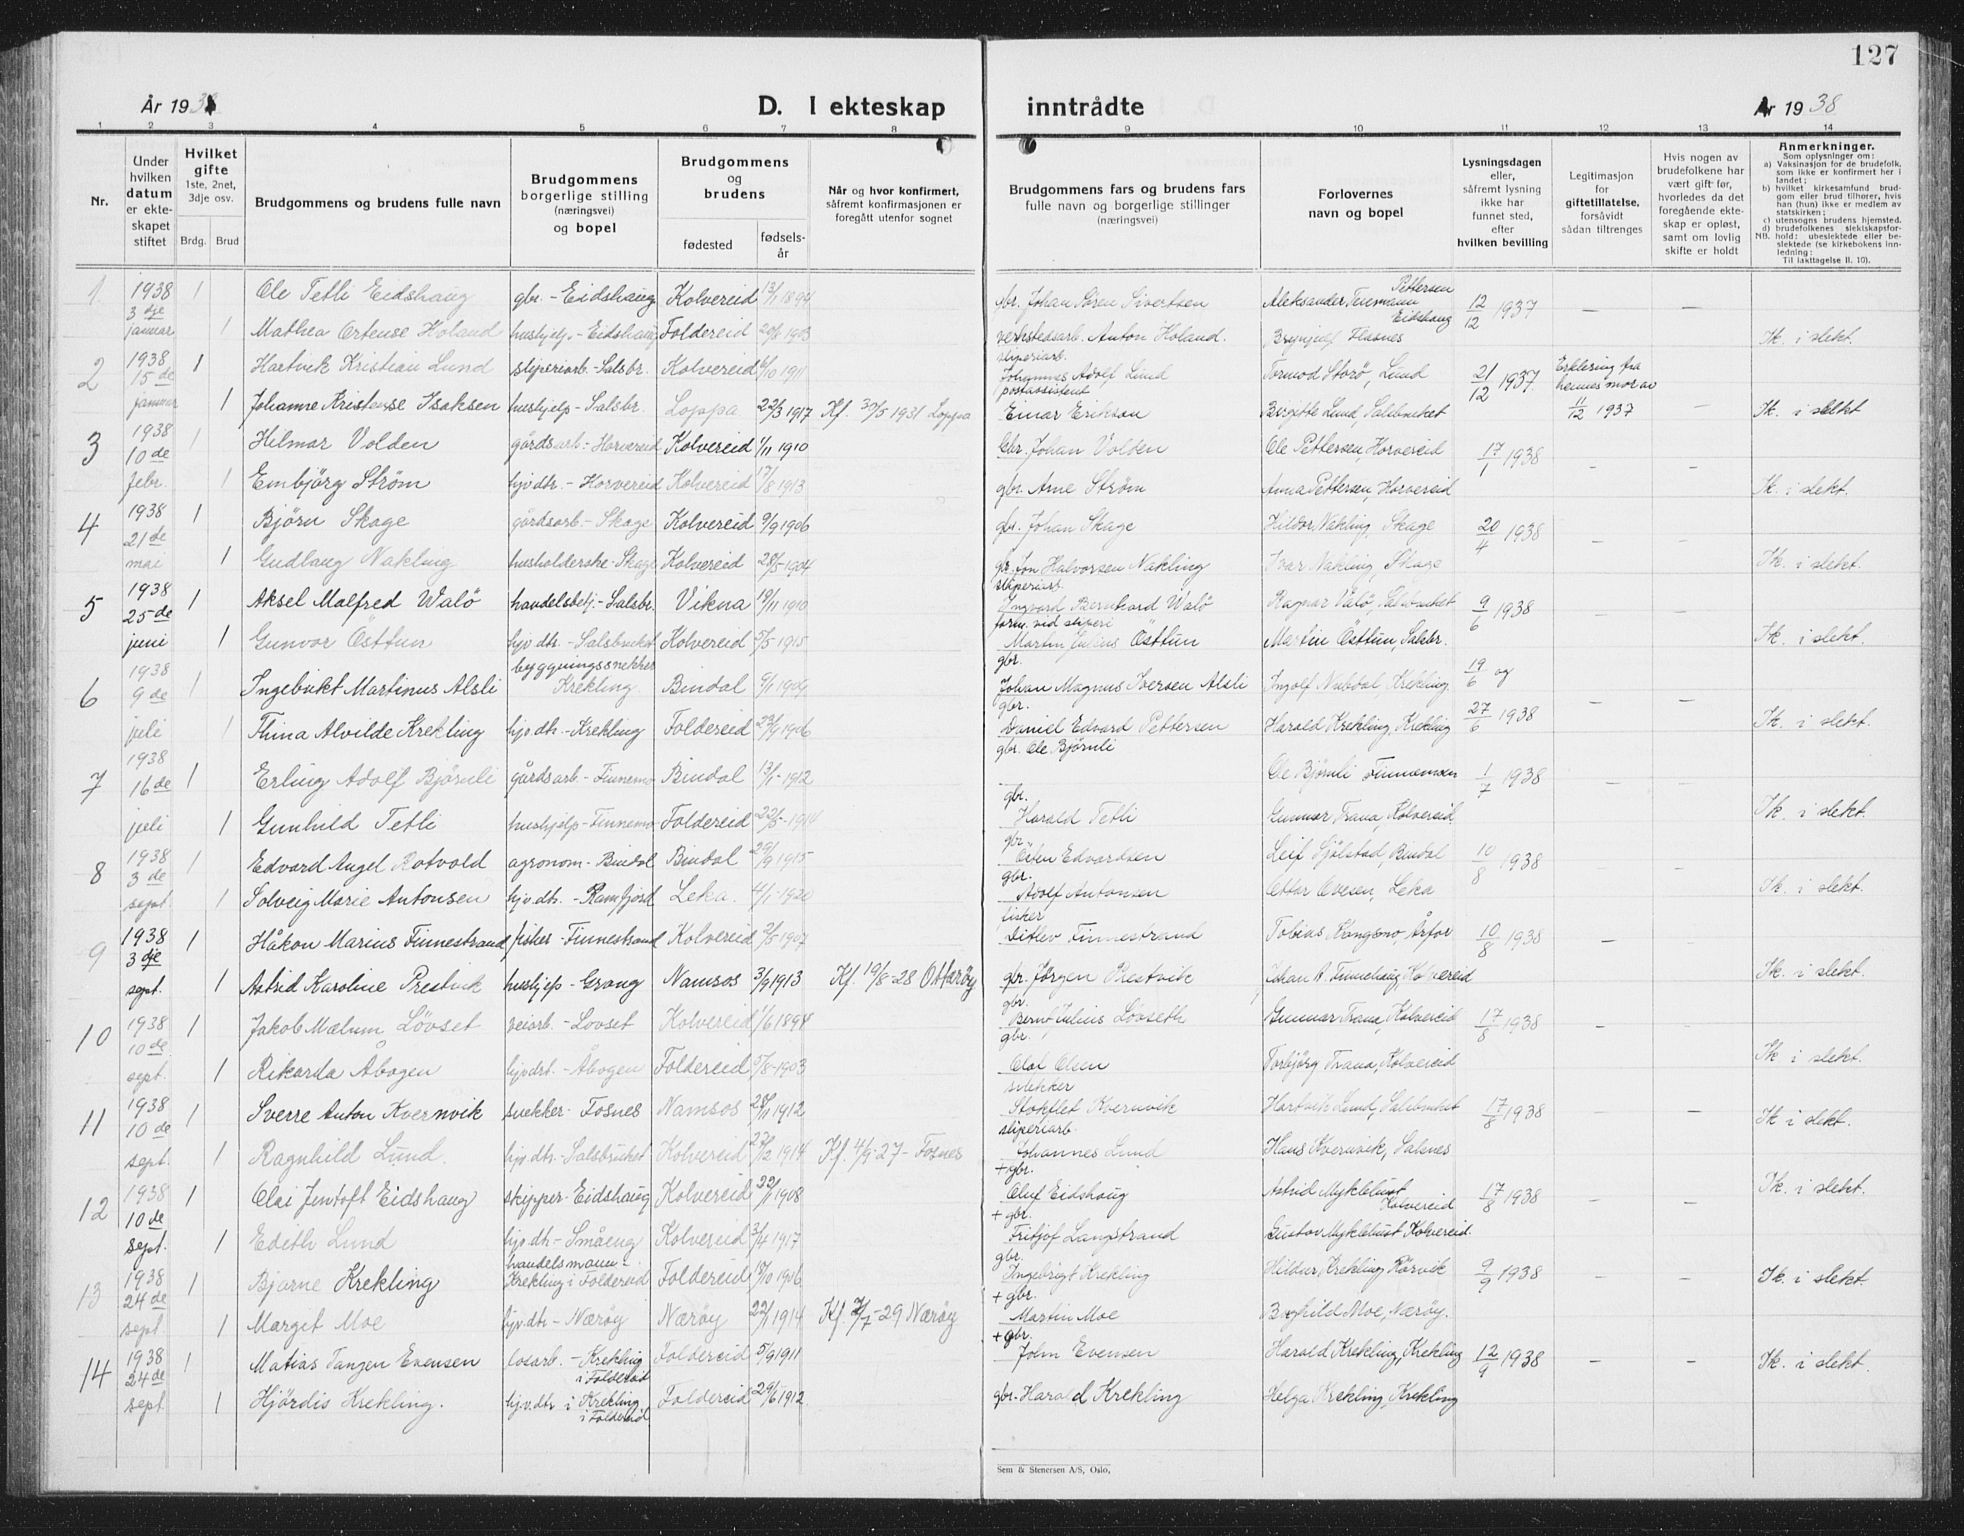 127
År 1938
D. I ekteskap inntrådte
År 1938
1 2 3 4 5 6 7 8 9 10 11 12 13 14
Nr.
Under hvilken datum er ekteskapet stiftet
Hvilket gifte 1ste, 2net, 3dje osv.
Brdg. Brud
Brudgommens og brudens fulle navn
Brudgommens borgerlige stilling (næringsvei) og bopel
Brudgommens og brudens
fødested
fødselsår
Når og hvor konfirmert, såfremt konfirmasjonen er foregått utenfor sognet
Brudgommens fars og brudens fars fulle navn og borgerlige stillinger (næringsvei)
Forlovernes navn og bopel
Lysningsdagen eller, såfremt lysning ikke har funnet sted, efter hvilken bevilling
Legitimasjon for giftetillatelse, forsåvidt sådan tiltrenges
Hvis nogen av brudefolkene har vært gift før, hvorledes da det foregående ekteskap er opløst, samt om lovlig skifte er holdt
Anmerkninger.
Som oplysninger om:
a) Vaksinasjon for de brudefolk, som ikke er konfirmert her i landet;
b) hvilket kirkesamfund brudgom eller brud tilhører, hvis han (hun) ikke er medlem av statskirken;
c) utensogns brudens hjemsted.
d) brudefolkenes slektskapsforhold: ubeslektede eller beslektede (se kirkebokens innledning:
NB. Til iakttagelse II. 10).
1 1938 3dje januar 1 Ole Tetli Eidshaug gbr. - Eidshaug Kolvereid 13/1 1894 Johan Sören Sivertsen Aleksander Teiemann Pettersen Eidshaug 12/12 1937 — —
1 Mathea Ortense Holand hushjelp. - Eidshaug Foldereid 20/8 1903 verkstedsarb. Anton Holand. Brynjulf Flasnes Ik. i slekt.
2 1938 15de januar 1 Hartvik Kristian Lund sliperiarb. - Salsbr. Kolvereid 6/10 1911 sliperiarb. Johannes Adolf Lund Tormod Storø, Lund 21/12 1937 Erklering fra hennes mor av 11/12 1937 —
1 Johanne Kristense Isaksen hushjelp - Salsbr. Loppa 22/3 1917 Kf. 30/5 1931 Loppa postassistent Einar Eriksen Birgitte Lund, Salsbruket Ik. i slekt
3 1938 10de febr. 1 Hilmar Volden gårdsarb. - Horvereid Kolvereid 1/11 1910 Gbr. Johan Volden Ole Pettersen, Horvereid 17/1 1938 — —
1 Embjörg Ström hjv. dtr. - Horvereid Kolvereid 17/8 1913 gbr. Arne Ström Anna Pettersen, Horvereid Ik. i slekt.
4 1938 21de mai 1 Björn Skage gårdsarb - Skage Kolvereid 9/9 1906 gbr. Johan Skage Hildor Nakling, Skage 20/4 1938 — —
1 Gudlaug Nakling husholderske - Skage Kolvereid 28/5 1904 gbr. Jon Halvorsen Nakling Ivar Nakling, Skage Ik. i slekt.
5 1938 25de juni 1 Aksel Malfred Walö handelsbetj. - Salsbr. Vikna 19/11 1910 sliperiarb. Ingvard Bernhard Walö Ragnar Valö, Salsbruket 9/6 1938 — —
1 Gunvor Östtun hjv dtr. - Salsbruket Kolvereid 5/5 1915 form. ved sliperi Martin Julius Östtun Martin Östtun, Salsbr. Ik. i slekt.
6 1938 9de juli 1 Ingebrikt Martinus Alsli byggningssnekker Krekling. Bindal 9/1 1909 gbr. Johan Magnus Iversen Alsli Ingolf Nubdal, Krekling. 19/6 og — —
1 Thina Alvilde Krekling hjv dtr. - Krekling Foldereid 23/9 1906 gbr. Daniel Edvard Pettersen Harald Krekling, Krekling 27/6 1938 Ik. i slekt.
7 1938 16de juli 1 Erling Adolf Björnli gårdsarb - Finnemo Bindal 13/1 - 1912 gbr. Ole Björnli Ole Björnli Finnemoen 1/7 1938 — —
1 Gunhild Tetli hushjelp - Finnemo Foldereid 22/5 - 1914 gbr. Harald Tetli Gunnar Trana, Kolvereid Ik. i slekt.
8 1938 3de sept. 1 Edvard Angel Rotvold agronom - Bindal Bindal 29/9 1915 gbr. Östen Edvardsen Leif Sjölstad, Bindal 10/8 1938 — —
1 Solveig Marie Antonsen hjv. dtr. - Ramfjord Leka. 4/1 - 1920 gbr. Adolf Antonsen Ottar Ovesen, Leka Ik. i slekt.
9 1938 3dje sept. 1 Håkon Marius Finnestrand fisker - Finnestrand Kolvereid 2/5 1907 fisker Ditlev Finnestrand Tobias Kongsmo, Årfor 10/8 1938 — —
1 Astrid Karoline Prestvik hushjelp - Grong Namsos 3/9 1913 Kf. 19/8 - 28 Otterøy gbr. Jörgen Prestvik Johan A. Finnehaug Kolvereid Ik. i slekt.
10 1938 10de sept. 1 Jakob Mælum Lövset veiarb. - Lovset Kolvereid 1/6 1898 gbr. Bernt Julius Lövseth Gunnar Trana, Kolvereid 17/8 1938 — —
1 Rikarda Åbogen hjv. dtr. - Åbogen Foldereid 5/8 - 1903 gbr. Olai Olsen Torbjörg Trana, Kolvereid Ik i slekt.
11 1938 10de sept. 1 Sverre Anton Kvernvik snekker - Fosnes Namsos 28/11 1912 snekker Stokflet Kvernvik Hartvik Lund, Salsbruket 17/8 1938 — — Ik. i slekt.
1 Ragnhild Lund. hjv. dtr. - Salsbruket Kolvereid 22/12 1914 Kf. 4/9 - 27 - Fosnes sliperiarb. Johannes Lund Hans Kvernvik, Salsnes
12 1938 10de sept. 1 Olai Jentoft Eidshaug skipper - Eidshaug Kolvereid 22/11 1908 + gbr. Oluf Eidshaug Astrid Myklebust Kolvereid 17/8 1938 — — Ik. i slekt.
1 Edith Lund hjv dtr - Småeng Kolvereid 3/4 1917 + gbr. Fritjof Langstrand Gustav Myklebust Kolvereid.
13 1938 24de sept 1 Bjarne Krekling handelsmann - Krekling i Foldereid Foldereid 18/10 1906 gbr. Ingebrigt Krekling Hildur Krekling Rörvik 9/9 1938 — — Ik. i slekt.
1 Margit Moe hjv. dtr - Nærøy Nærøy 22/11 1914 Kf. 7/7 - 29 Nærøy + gbr. Martin Moe Borghild Moe, Nærøy.
14 1938 24de sept 1 Matias Tangen Evensen losarb. - Krekling i Foldereid Foldereid 5/9 1911 + gbr. John Evensen Harald Krekling, Krekling 12/9 1938 — — Ik. i slekt.
1 Hjördis Krekling. hjv. dtr i Krekling i Foldereid Foldereid 29/6 1912 gbr. Harald Krekling Helga Krekling, Krekling
Sem & Stenersen A/S, Oslo.